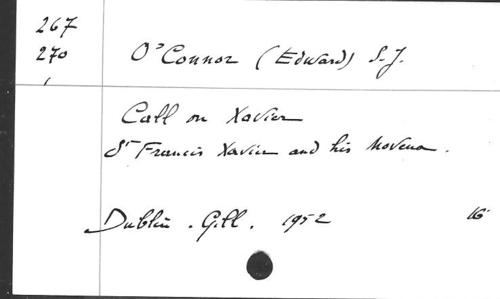 267
270 O'Connor (Edward) S.J.
Call on Xavier
St Francis Xavier and his Novena.
Dublin. Gill. 1952 16°